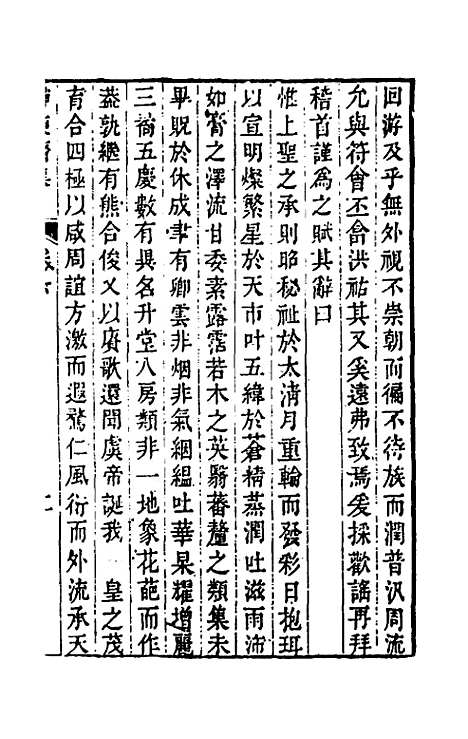 回游及乎無外視不崇朝而徧不待族而潤普汎周流
允與符會丕畣洪祐其又奚遠弗致焉爰採歡謠再拜
稽首謹為之賦其辭曰
惟上聖之承則昭秘祉於太淸月重輪而發彩日抱珥
以宣明燦繁星於天市叶五緯於蒼精蒸潤吐滋雨沛
如膏之澤流甘委素露霑若木之英翳蕃釐之類集未
畢貺於休成聿有卿雲非烟非氣絪縕吐華杲耀增麗
三裔五慶數有異名升堂入房類非一地象花葩而作
蓋孰繼有熊合俊乂以賡歌還聞虞帝誕我 皇之茂
育合四極以咸周誼方激而遐驁仁風衍而外流承天